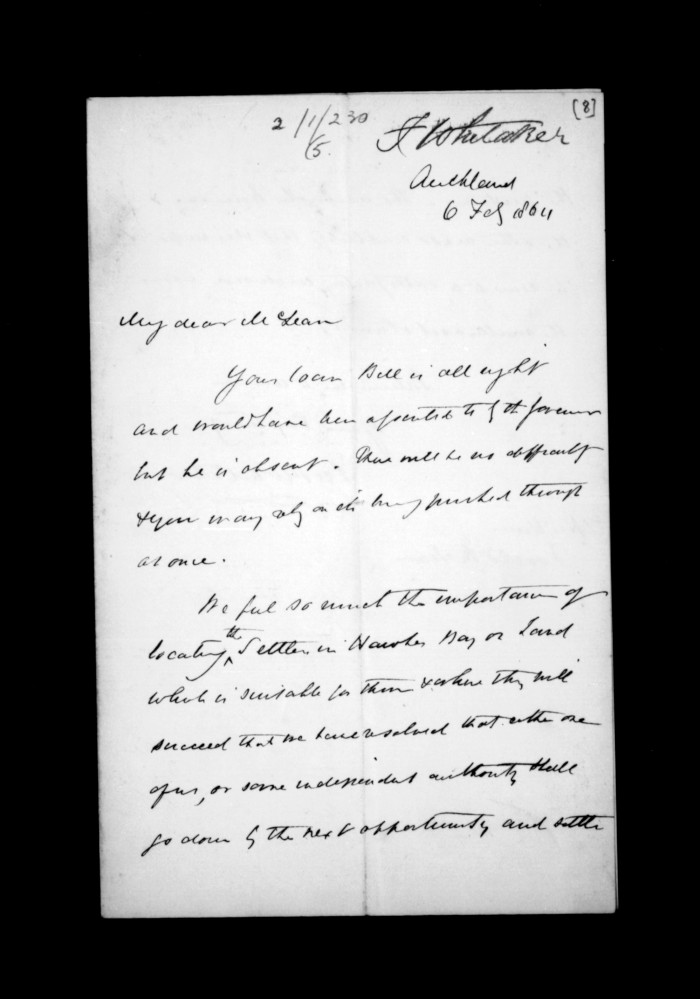 [8]
2/1/230
15.
F Whitaker
Auckland
6 Feby 1864
My dear McLean
Your loan Bill is all right
and would have been assented to by the Governor
but he is absent. There will be no difficulty
& you may rely on its being pushed through
at once.
We feel so much the importance of
locating the Settlers in Hawkes Bay on Land
which is suitable for them & where they will
succeed that we have resolved that either one
of us, or some independent authority shall
go down by the next opportunity and settle